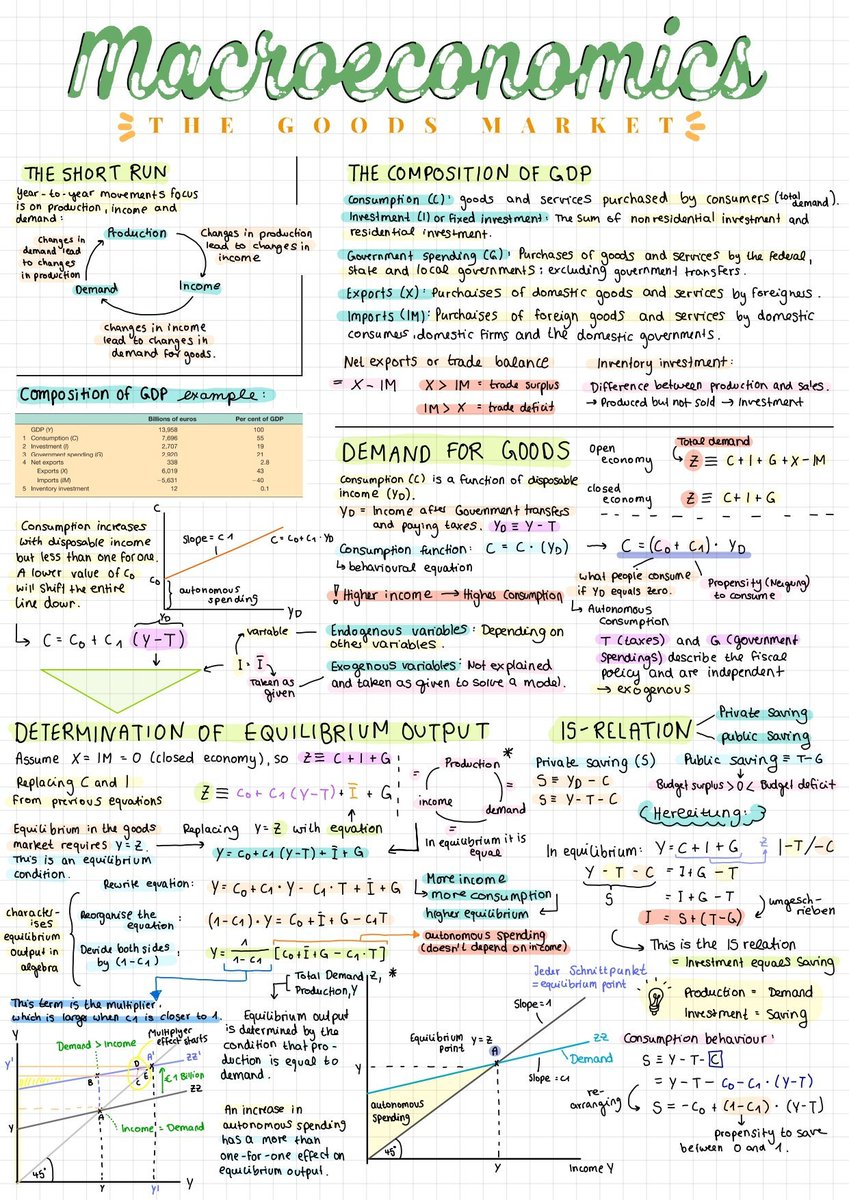 Macroeconomics
THE GOODS MARKET
THE SHORT RUN
Year-to-year movements focus
is on production, income and
demand:
Production
Changes in production
lead to changes in
income
Income
changes in income
lead to changes in
demand for goods.
Demand
Changes in
demand lead
to changes
in production
THE COMPOSITION OF GDP
Consumption (C): goods and services purchased by consumers (total demand).
Investment (I) or fixed investment: The sum of nonresidential investment and
residential investment.
Government spending (G): Purchases of goods and services by the federal,
state and local governments: excluding government transfers.
Exports (X): Purchaises of domestic goods and services by foreigners.
Imports (IM): Purchaises of foreign goods and services by domestic
consumers, domestic firms and the domestic governments.
Net exports or trade balance
= X - IM
X > IM = trade surplus
IM > X = trade deficit
Inventory investment:
Difference between production and sales.
→ Produced but not sold → Investment
Composition of GDP example:
Billions of euros Per cent of GDP
GDP (Y) 13,958 100
1 Consumption (C) 7,696 55
2 Investment (I) 2,707 19
3 Government spending (G) 2,920 21
4 Net exports 338 2.8
Exports (X) 6,019 43
Imports (IM) −5,631 −40
5 Inventory investment 12 0.1
DEMAND FOR GOODS
Consumption (C) is a function of disposable
income (YD).
YD = Income after Government transfers
and paying taxes. YD ≡ Y - T
Consumption function: C = C · (YD) → C = (C0 + C1) · YD
↳ behavioural equation
! Higher income → Highes Consumption
Open
economy
Total demand
Z ≡ C + I + G + X - IM
closed
economy
Z ≡ C + I + G
what people consume
if YD equals zero.
↳ Autonomous
Consumption
Propensity (Neigung)
to consume
Consumption increases
with disposable income
but less than one for one.
A lower value of C0
will shift the entire
line down.
C
slope = C1
C = C0 + C1 · YD
C0
autonomous
spending
YD
YD
↳ C = C0 + C1 (Y-T)
variable
I = Ī
Taken as
given
Endogenous variables: Depending on
other variables.
Exogenous variables: Not explained
and taken as given to solve a model.
T (taxes) and G (government
spendings) describe the fiscal
policy and are independent
→ exogenous
DETERMINATION OF EQUILIBRIUM OUTPUT
Assume X = IM = 0 (closed economy), so Z ≡ C + I + G
Replacing C and I
from previous equations
Z ≡ C0 + C1 (Y-T) + Ī + G
Equilibrium in the goods
market requires Y = Z.
This is an equilibrium
condition.
Replacing Y = Z with equation
Y = C0 + C1 (Y-T) + Ī + G
Production *
=
=
income
demand
=
In equilibrium it is
equal
characte-
ises
equilibrium
output in
algebra
Rewrite equation: Y = C0 + C1 · Y - C1 · T + Ī + G
Reorganise the
equation: (1-C1) · Y = C0 + Ī + G - C1T
Devide both sides
by (1-C1) : Y = 1/1-C1 [C0 + Ī + G - C1 · T]
More income
more consumption
higher equilibrium
autonomous spending
(doesn't depend on income)
This term is the multiplier,
which is large when C1 is closer to 1.
Y
Y'
Demand > Income
Multiplyer
effect starts
D
A'
ZZ'
B
E
C
€1 Billion
ZZ
A
Income = Demand
Y
45°
Y
Y'
Y
Equilibrium output
is determined by the
condition that pro-
duction is equal to
demand.
An increase in
autonomous spending
has a more than
one-for-one effect on
equilibrium output.
Total Demand Z, *
Production, Y
Jeder Schnittpunkt
= equilibrium point
Slope = 1
Equilibrium
Point
Y = Z
A
ZZ
Demand
Slope = C1
Y
autonomous
Spending
45°
Y
Income Y
IS-RELATION
Private saving
public saving
Private saving (S)
S ≡ YD - C
S ≡ Y - T - C
Public saving ≡ T - G
Budget surplus > 0 < Budget deficit
(Hereitung:)
In equilibrium: Y = C + I + G Z |-T/-C
Y - T - C = I + G - T
S = I + G - T
I = S + (T-G)
umgesch-
rieben
This is the IS relation
= Investment equals Saving
Production = Demand
Investment = Saving
Consumption behaviour:
S ≡ Y - T - C
= Y - T - C0 - C1 · (Y-T)
re-
arranging
S = -C0 + (1-C1) · (Y-T)
propensity to save
between 0 and 1.